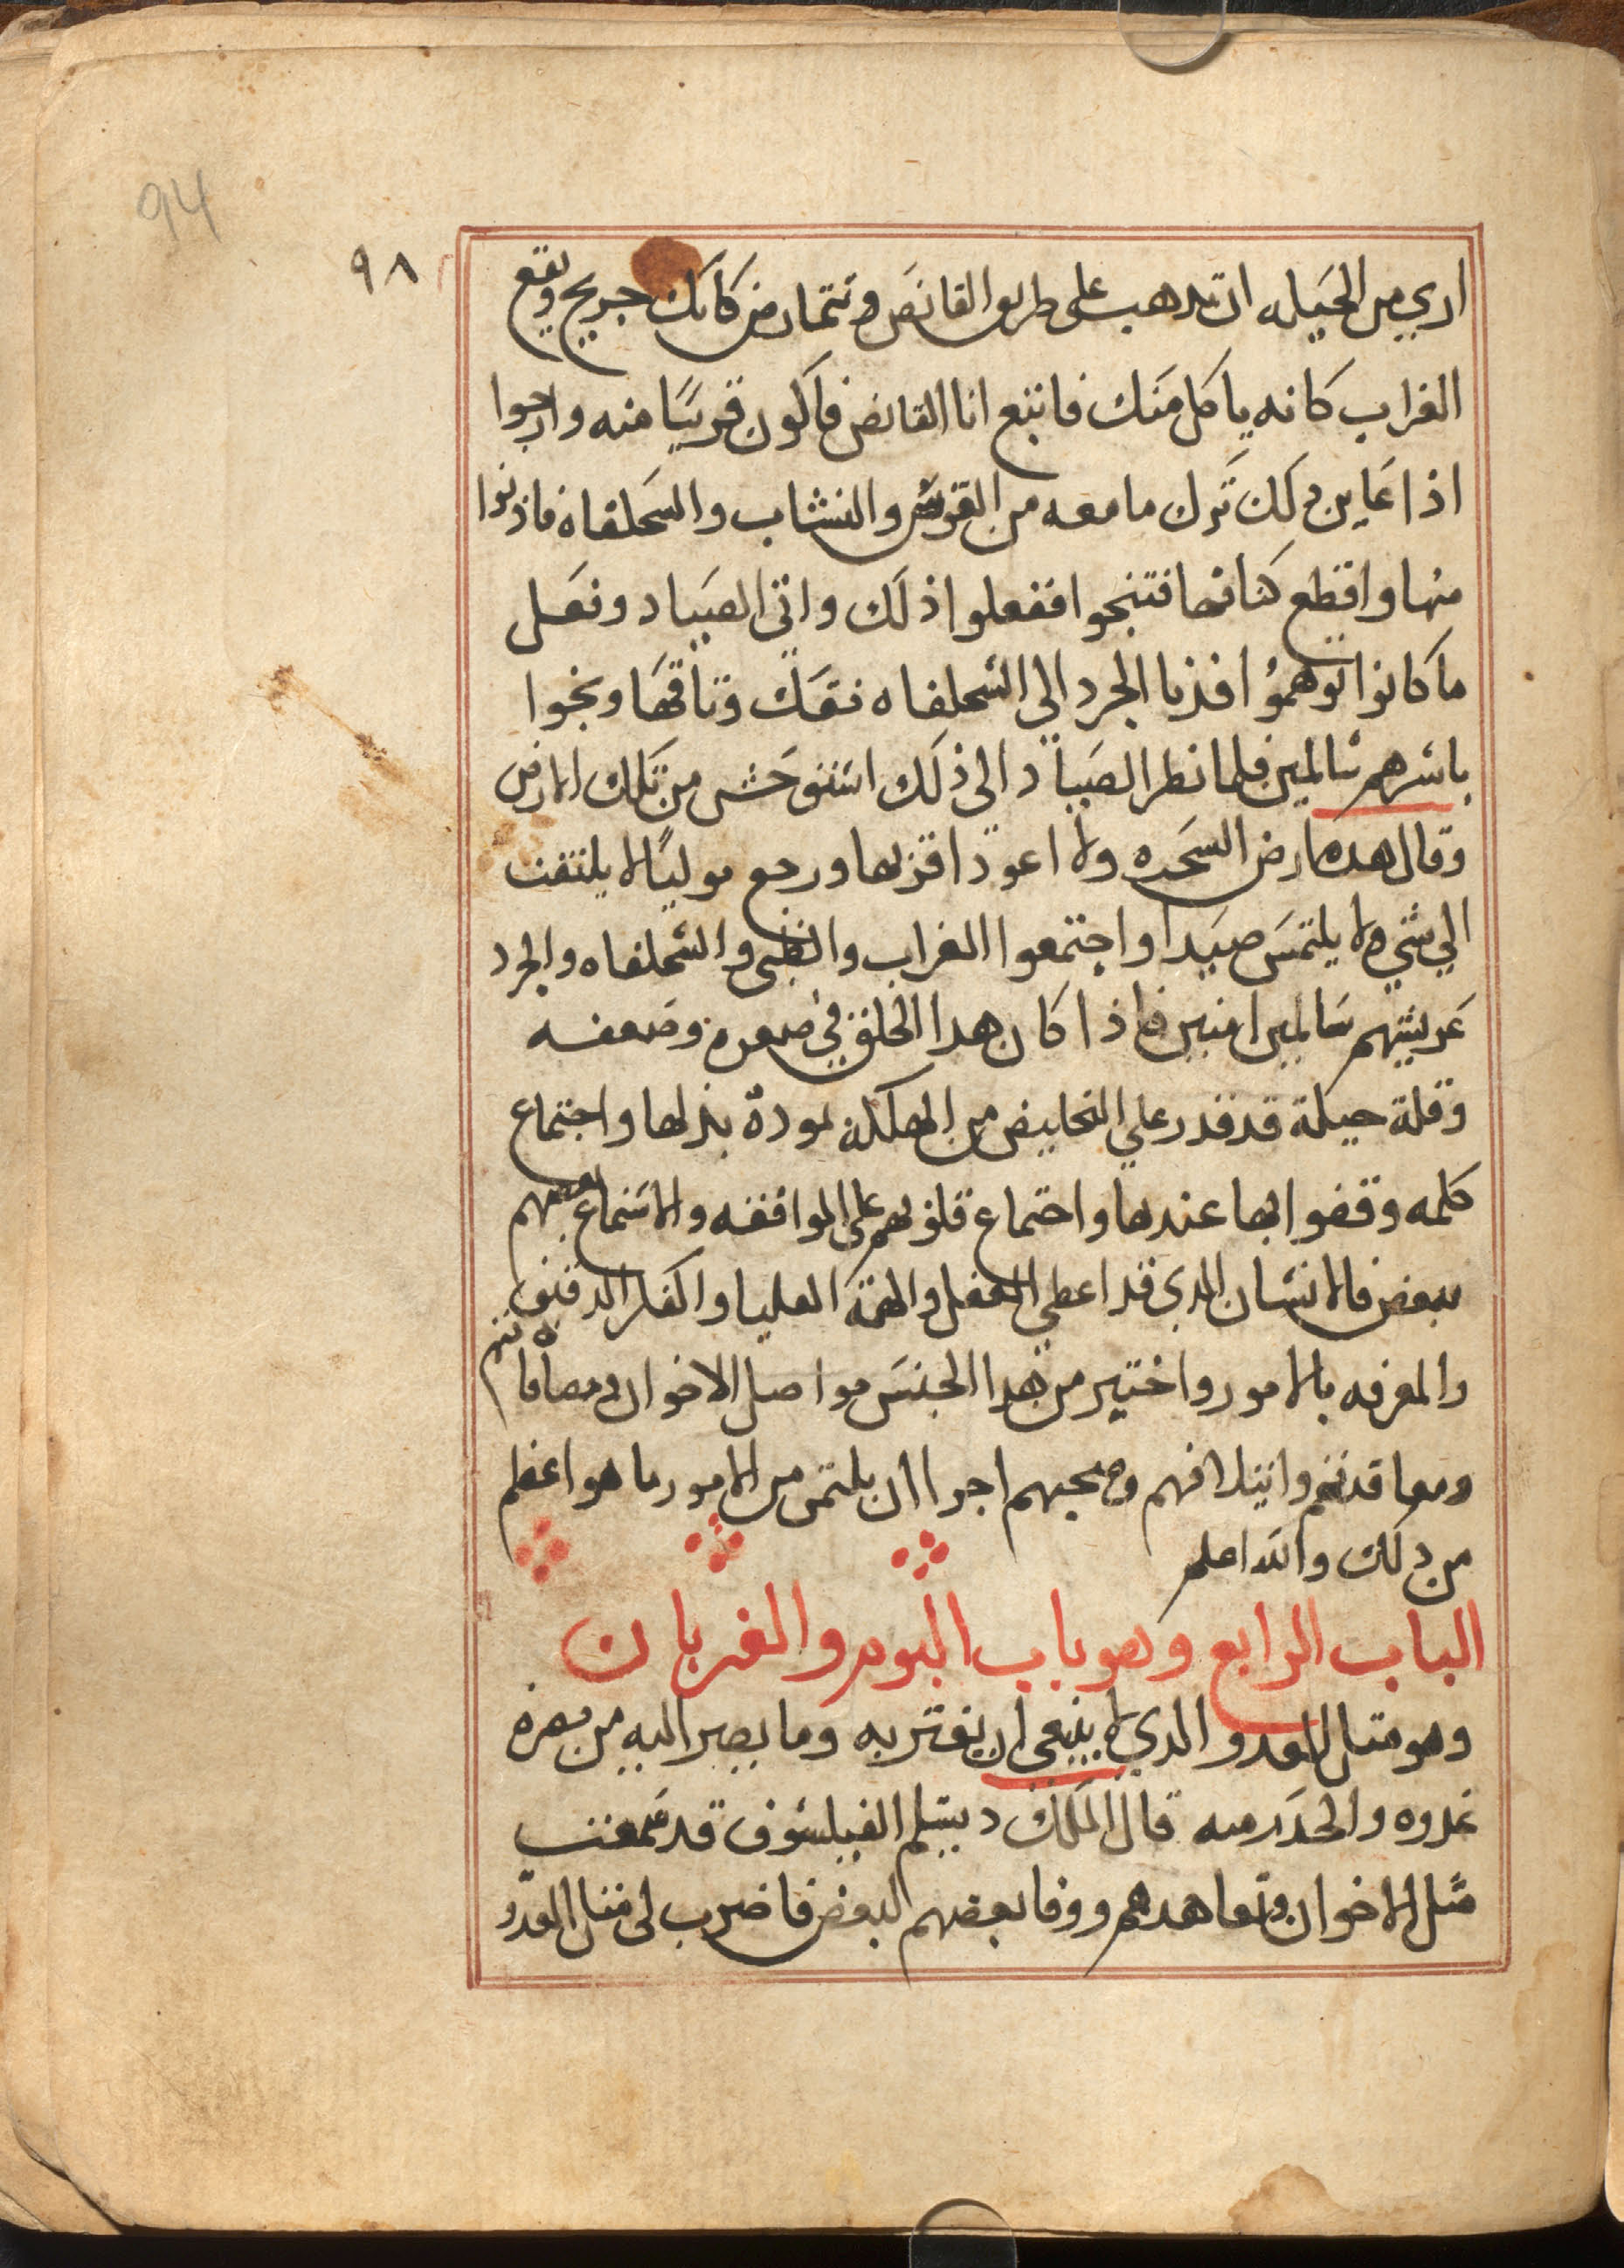 94
٩٨
اري من الحيله ان تدهب على طريق القانص وتتمارض كانك جريح ويقع
الغراب كانه ياكل منك فاتبع انا القانص فاكون قريبا منه وارجوا
اذا عاين دلك ترك ما معه من القوس والنشاب والسحلفاه فادنوا
منها واقطع كتافها فتنجوا ففعلوا ذلك واتي الصياد وفعل
ما كانوا توهموا فدنا الجرد الي السحلفاه ففك وثاقها ونجوا
باسرهم سالمين فلما نظر الصياد الى ذلك استوحش من تلك الارض
وقال هده ارض السحره ولا اعود اقربها ورجع موليا لا يلتفت
الي شي ولا يلتمس صيدا واجتمعوا الغراب والظبي والسحلفاه والجرد
عريشهم سالمين امنين فاذا كان هدا الخلق في صغره وضعفه
وقلة حيلة قد قدر علي التخليص من الهلكه لمودة بدلها واجتماع
كلمه وقفوا بها عندها واجتماع قلوبهم على الموافقه والاستماع بعضهم
ببعض فالانسان الدي قد اعطي العقل والهمة العليا والفكر الدقيق
والمعرفه بالامور واختير من هدا الجنس مواصل الاخوان ومصافاتهم
ومعاقدتهم وايتلافهم وصحبهم اجرا ان يلتمس من الامور ما هو اعظم
من دلك والله اعلم
الباب الرابع وهو باب البوم والغربان
وهو مثل العدو الدي لا ينبغي ان يغتر به وما يصير اليه من
عدوه والحدر منه قال الملك ديبسلم الفيلسوف قد سمعت
مثل الاخوان وتعاهدهم ووفا بعضهم البعض فاضرب لى مثل العدو